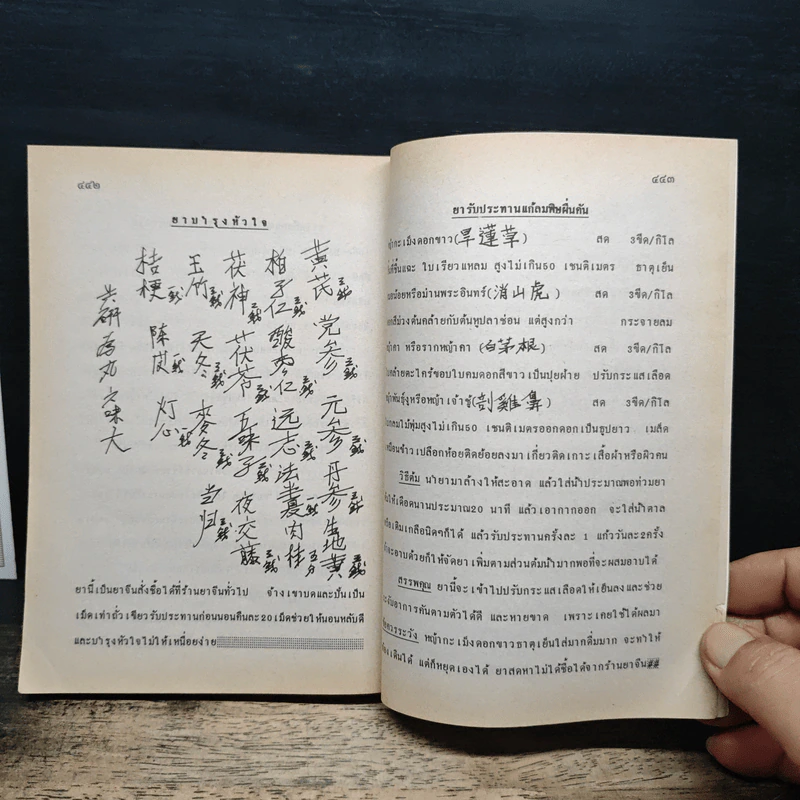 ๔๔๒
ยาบำรุงหัวใจ
黃芪 三錢 党参 三錢 元参 三錢 丹参 三錢 生地黃 三錢
柏子仁 三錢 酸枣仁 三錢 远志 法夏 肉桂 五分
茯神 三錢 茯苓 三錢 五味子 夜交藤 三錢
玉竹 三錢 天冬 三錢 麥冬 三錢 当归 三錢
桔梗 陈皮 灯心
共研為丸
ยานี้เป็นยาจีนสั่งซื้อได้ที่ร้านยาจีนทั่วไป จ้างเขาบดและปั้นเป็น
เม็ดเท่าถั่วเขียวรับประทานก่อนนอนคืนละ 20 เม็ดช่วยให้นอนหลับดี
และบำรุงหัวใจไม่ให้เหนื่อยง่าย
๔๔๓
ยารับประทานแก้ลมพิษผื่นคัน
กะเม็งดอกขาว (旱蓮草) สด 3ขีด/กิโล
ใบเรียวแหลม สูงไม่เกิน50 เซนติเมตร ธาตุเย็น
น้อยหรือม่านพระอินทร์ (消山虎) สด 3ขีด/กิโล
สีม่วงต้นคล้ายกับต้นหูปลาช่อน แต่สูงกว่า กระจายลม
คา หรือรากหญ้าคา (白茅根) สด 3ขีด/กิโล
คล้ายตะไคร้ขอบใบคมดอกสีขาวเป็นปุยฝ้าย ปรับกระแสเลือด
พันธุ์งูหรือหญ้าเจ้าชู้ (剖雞鼻) สด 3ขีด/กิโล
ไม้พุ่มสูงไม่เกิน50 เซนติเมตรออกดอกเป็นธูปยาว เมล็ด
เหมือนข้าวเปลือกห้อยติดย้อยลงมา เกี่ยวติดเกาะเสื้อผ้าหรือผิวคน
วิธีต้ม นำยามาล้างให้สะอาด แล้วใส่น้ำประมาณพอท่วมยา
ให้เดือดนานประมาณ20 นาที แล้วเอากากออก จะใส่น้ำตาล
หรือเติมเกลือนิดๆก็ได้ แล้วรับประทานครั้งละ 1 แก้ววันละ2ครั้ง
จะอาบด้วยก็ให้จัดยา เพิ่มตามส่วนต้มน้ำมากพอที่จะผสมอาบได้
สรรพคุณ ยานี้จะเข้าไปปรับกระแสเลือดให้เย็นลงและช่วย
ระงับอาการคันตามตัวได้ดี และหายขาด เพราะเคยใช้ได้ผลมา
ควรระวัง หญ้ากะเม็งดอกขาวธาตุเย็นใส่มากดื่มมาก จะทำให้
เดินได้ แต่ก็หยุดเองได้ ยาสดหาไม่ได้ซื้อได้จากร้านยาจีน##